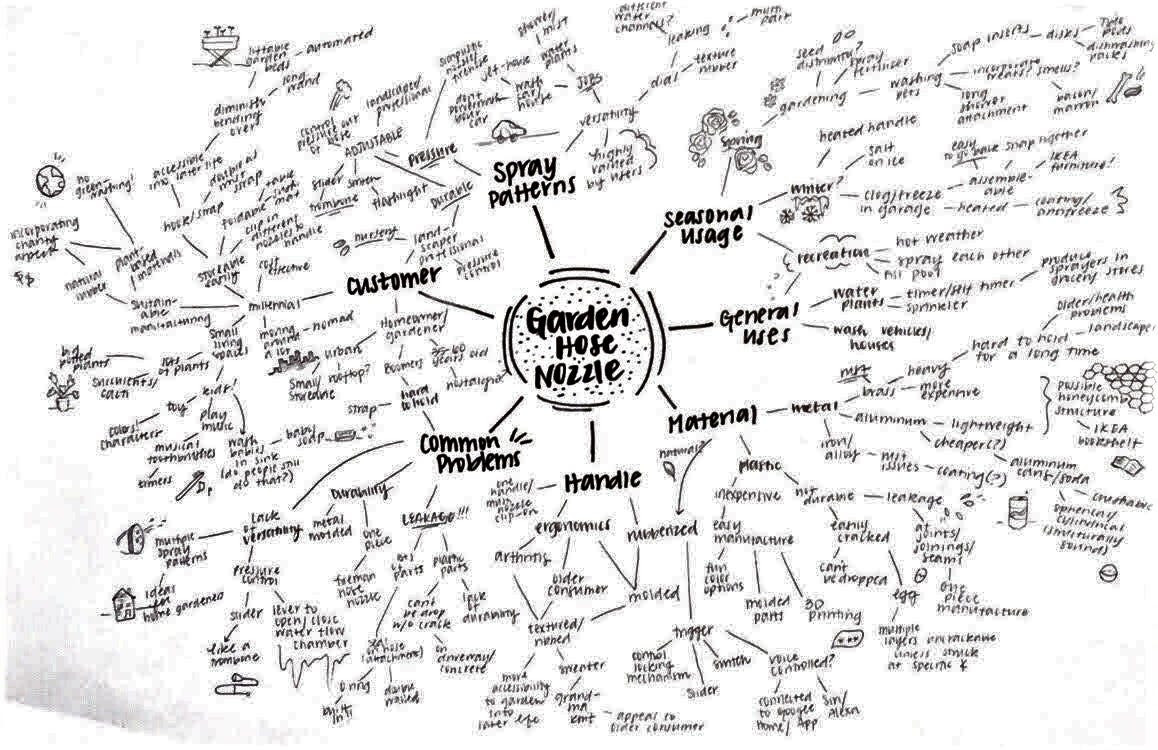 Garden
Hose
Nozzle
Spray
Patterns
versatility
highly
rated
by users
JOBS
water
plants
wash
car/
house
jet-hose
shower/
mist
don't
your car
dial
texture
rubber
leaking
multi
part
different
water
channels?
Seasonal
usage
Spring
gardening
seed
dispensing?
spray
fertilizer
washing
pets
soap inserts
disks
Tide
pods
dishwashing
packs
incorporate
treats?
smells?
bacon/
marrow
long
shower
attachment
winter?
heated handle
salt
on ice
clog/freeze
in garage
assemble-
able
easy
snap together
IKEA
furniture!
heated
coating/
antifreeze
General
uses
recreation
hot weather
spray each other
fill pool
water
plants
timer/slit timer
sprinkler
produce
sprayers in
grocery stores
wash vehicles/
houses
Material
natural?
metal
brass
heavy
hard to hold
for a long time
older/health
problems
landscaper
more
expensive
aluminum
lightweight
cheaper(?)
possible
honeycomb
structure
IKEA
bookshelf
iron/
alloy
rust
issues
coating(?)
aluminum
cans/soda
crushable
spherical/
cylindrical
(structurally
sound)
plastic
inexpensive
easy
manufacture
fun
color
options
molded
parts
3D
printing
not
durable
leakage
at
joints/
joinings/
seams
one
piece
manufacture
easily
cracked
can't
be dropped
egg
multiple
layers
uncrackable
unless struck
at specific
Handle
one
handle/
nozzle
clip-on
ergonomics
arthritis
older
consumer
molded
textured/
ribbed
more
accessibility
to garden
into
later life
sweater
grand-
ma
knit
appeal to
older consumer
rubberized
trigger
control
locking
mechanism
slider
switch
voice
controlled?
connected
to google
home/ App
Siri/
Alexa
Common
Problems
LEAKAGE!!!
lots
of
parts
plastic
parts
can't
be drop
w/o crack
on
driveway/
concrete
lack
of
durability
(attachment)
O ring
built
in!
double
walled
Durability
metal
molded
one
piece
fireman
hose
nozzle
lack
of
versatility
multiple
spray
patterns
ideal
for
home gardener
pressure
control
slider
like a
trombone
lever to
open/close
water flow
chamber
Customer
landscaper
professional
pressure
control
nursery
Durable
Homeowner/
gardener
Boomers
years old
nostalgic
hard
to hold
strap
urban
Small/
rooftop?
storable
millennial
cost
effective
moving
around
a lot
nomad
small
living
spaces
lots
of plants
big
potted
plants
succulents/
cacti
kids!
toy
colors!
characters
play
music
musical
toothbrushes
timers
wash
babies
in sink
(do people still
do that?)
baby
soap
sustain-
able
manufacturing
natural
rubber
plant
based
materials
no
green-
washing!
incorporating
charity
aspect
$$
storable
easily
hook/strap
double as
strap
accessible
into later life
diminish
bending
over
long
wand
liftable
garden
beds
automated
foldable
clip in
different
nozzles to
handle
pressure
ADJUSTABLE
control
pressure out
of hose
landscaper/
professional
slider
trombone
flashlight